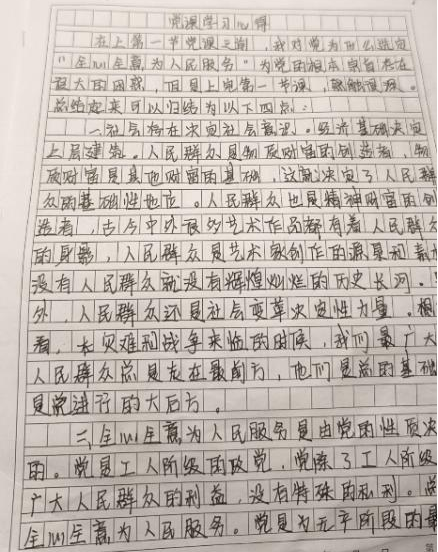 党课学习心得
在上第一节党课之前，我对党为什么选定
"全心全意为人民服务"为党的根本宗旨存在
很大的困惑，但是上完第一节课，
总结起来可以归结为以下四点：
一、社会存在决定社会意识。经济基础决定
上层建筑。人民群众是物质财富的创造者，物
质财富是其他财富的基础，这就决定了人民群
众的基础性地位。人民群众也是精神财富的创
造者，古今中外很多艺术作品都有着人民群众
的身影，人民群众是艺术家创作的源泉和素
没有人民群众就没有辉煌灿烂的历史长河。
外，人民群众还是社会变革决定性力量。相
看，大灾难和战争来临的时候，我们最广大
人民群众总是走在最前方，他们是党的基础
是党进行的大后方。
二、全心全意为人民服务是由党的性质决
的。党是工人阶级的政党，党除了工人阶级
广大人民群众的利益，没有特殊的私利。党
全心全意为人民服务。党是为无产阶段的最